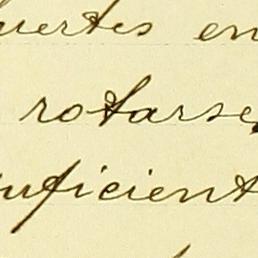 uertes en
rotarse
uficient